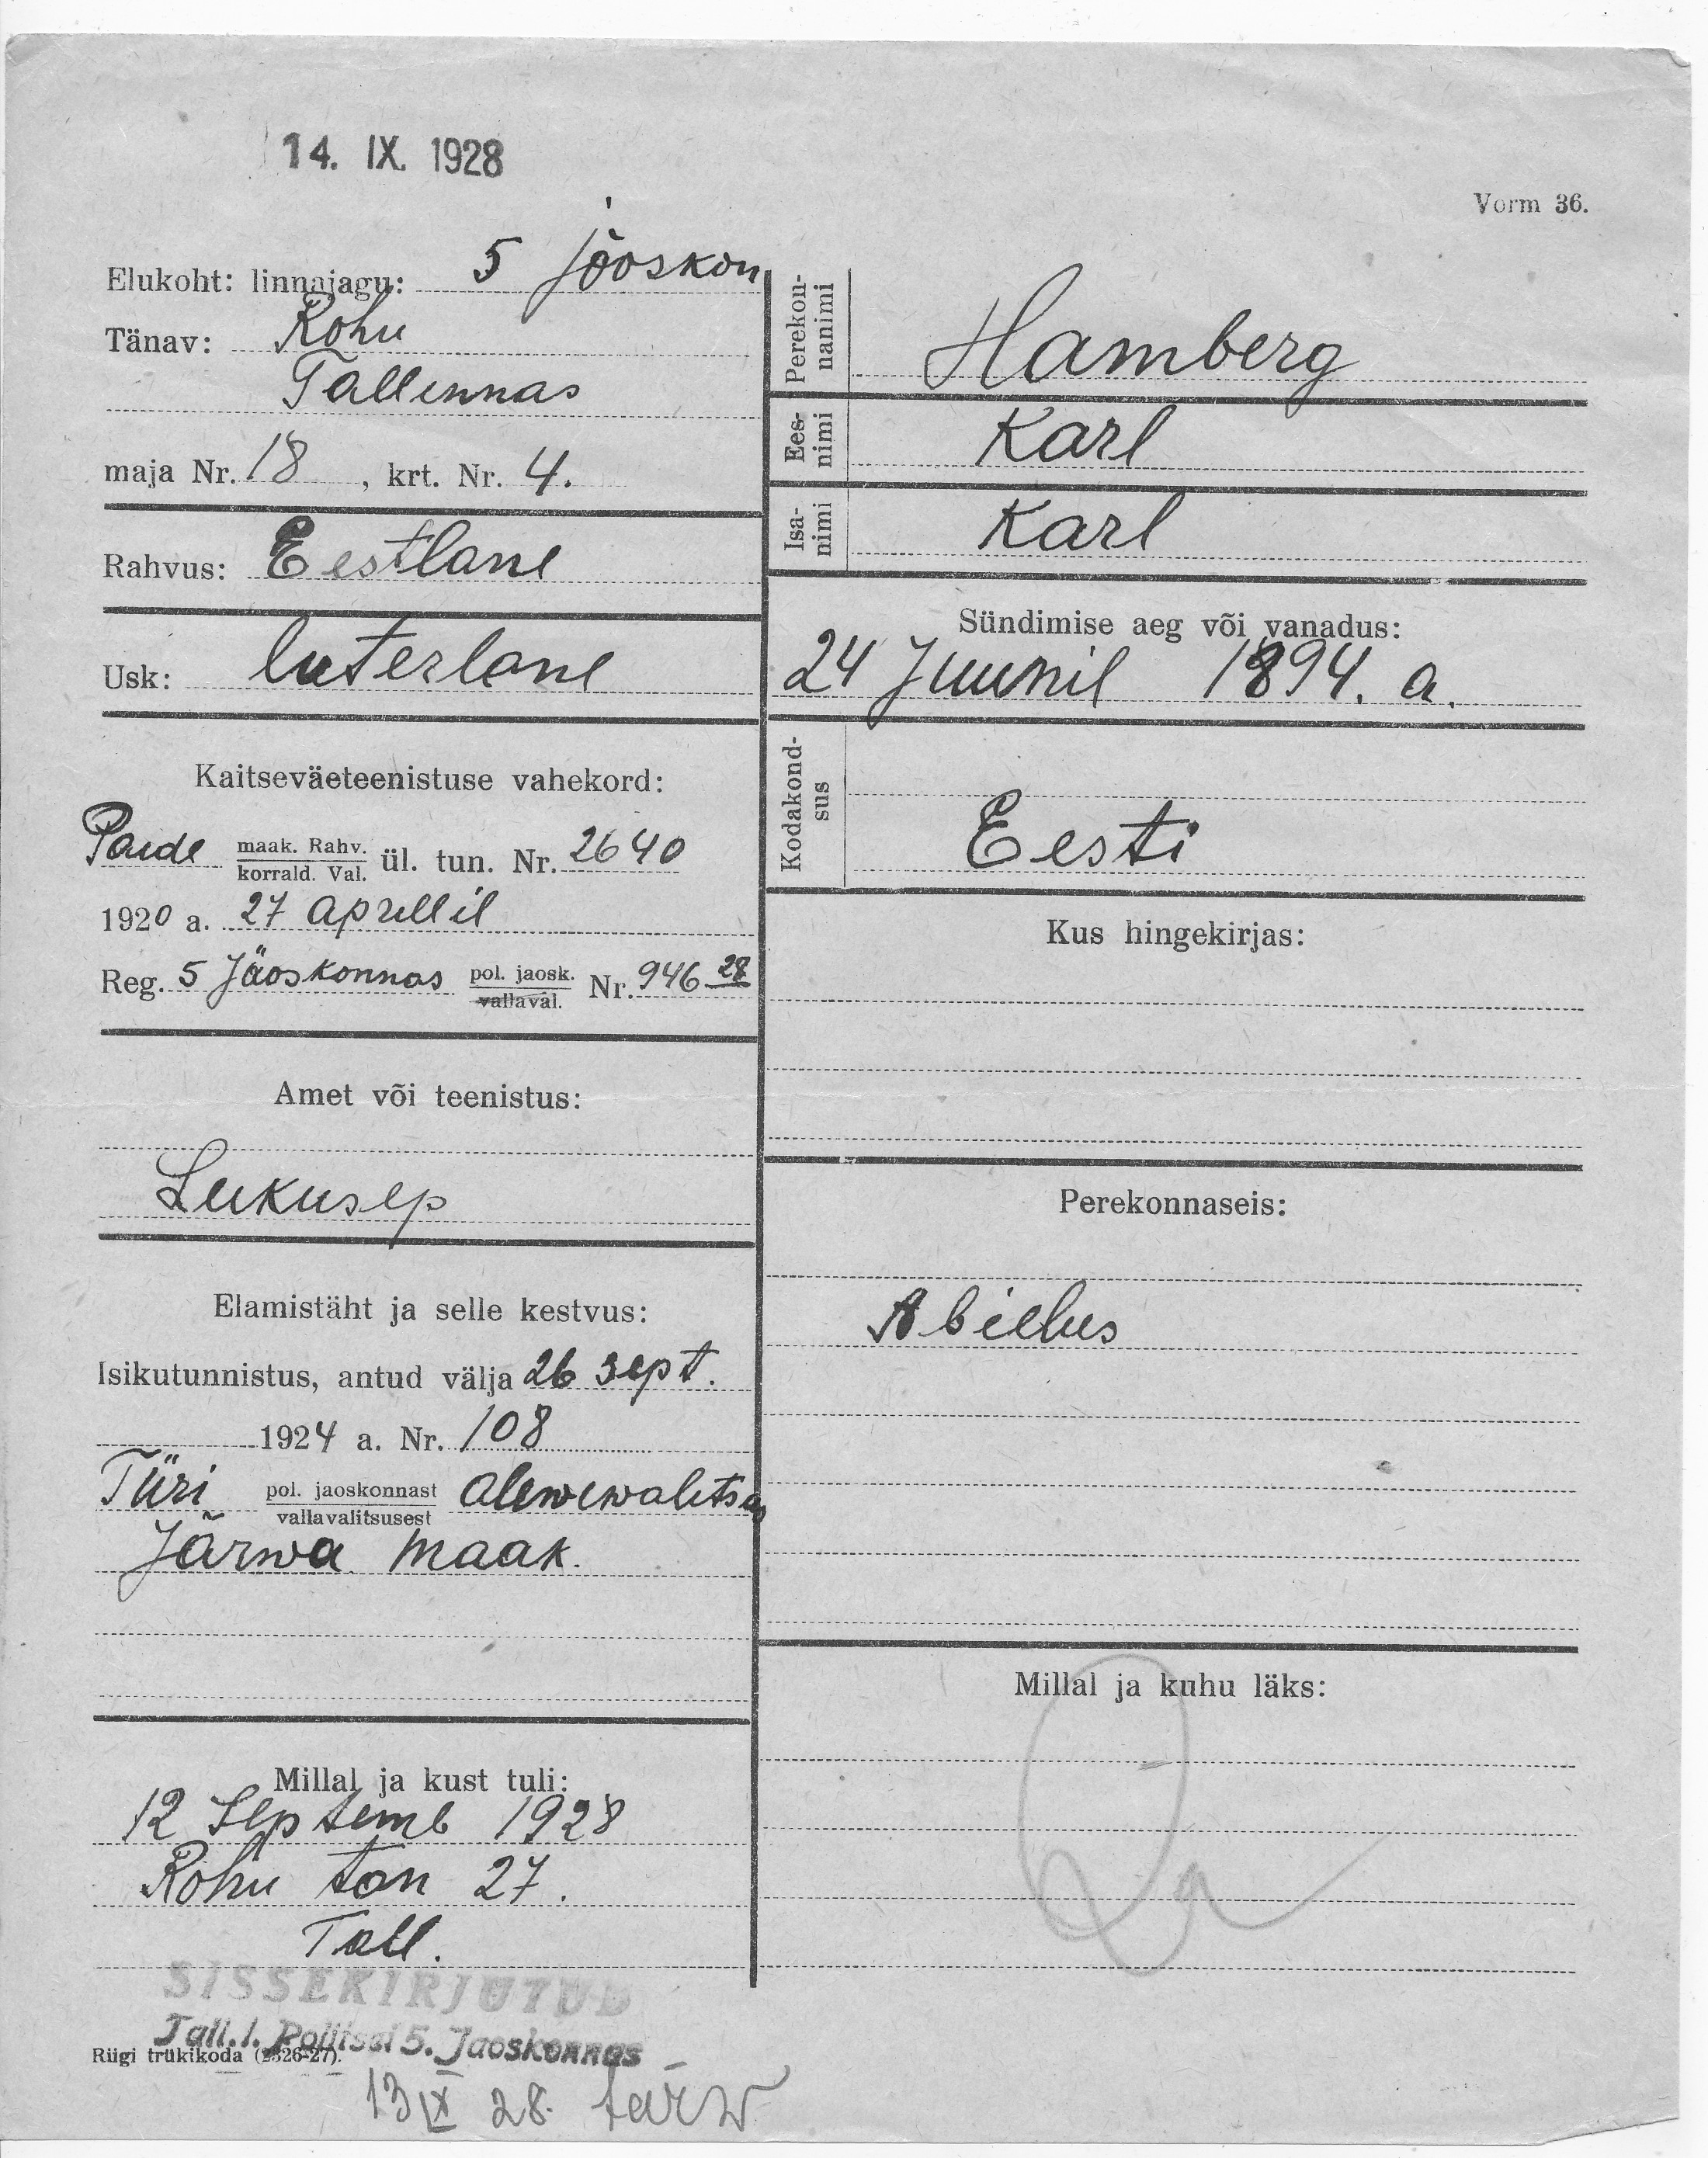 14. IX. 1928
Vorm 36.
Elukoht: linnajagu: 5 jõoskon
Tänav: Rohu
Tallennas
maja Nr. 18, krt. Nr. 4.
Rahvus: Eestlane
Usk: luterlane
Kaitseväeteenistuse vahekord:
Paide maak. Rahv. korrald. Val. ül. tun. Nr. 2640
1920 a. 27 aprillil
Reg. 5 Jäoskonnas pol. jaosk. vallaval. Nr. 946 28
Amet või teenistus:
Lukusep
Elamistäht ja selle kestvus:
Isikutunnistus, antud välja 26 sept.
1924 a. Nr. 108
Türi pol. jaoskonnast vallavalitsusest
Järwa maak.
Millal ja kust tuli:
12 Septemb 1928
Rohu tän 27.
Tall.
SISSEKIRJUTUD
Tall. l. Politsei 5. Jaoskonnas
Riigi trükikoda (2326-27).
13 IX 28.
Perekonnanimi
Hamberg
Eesnimi
Karl
Isanimi
Karl
Sündimise aeg või vanadus:
24 Juunil 1894. a.
Kodakondsus
Eesti
Kus hingekirjas:
Perekonnaseis:
Abielus
Millal ja kuhu läks: